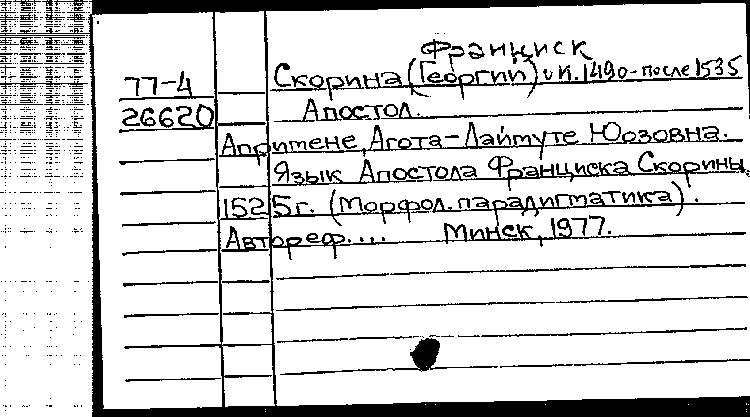 Франциск
77-4 Скорина (Георгий) ок. 1490-после 1535
26620 Апостол.
Апритене, Агота-Лаймуте Юозовна.
Язык Апостола Франциска Скорины,
1525г. (Морфол. парадигматика).
Автореф.... Минск, 1977.